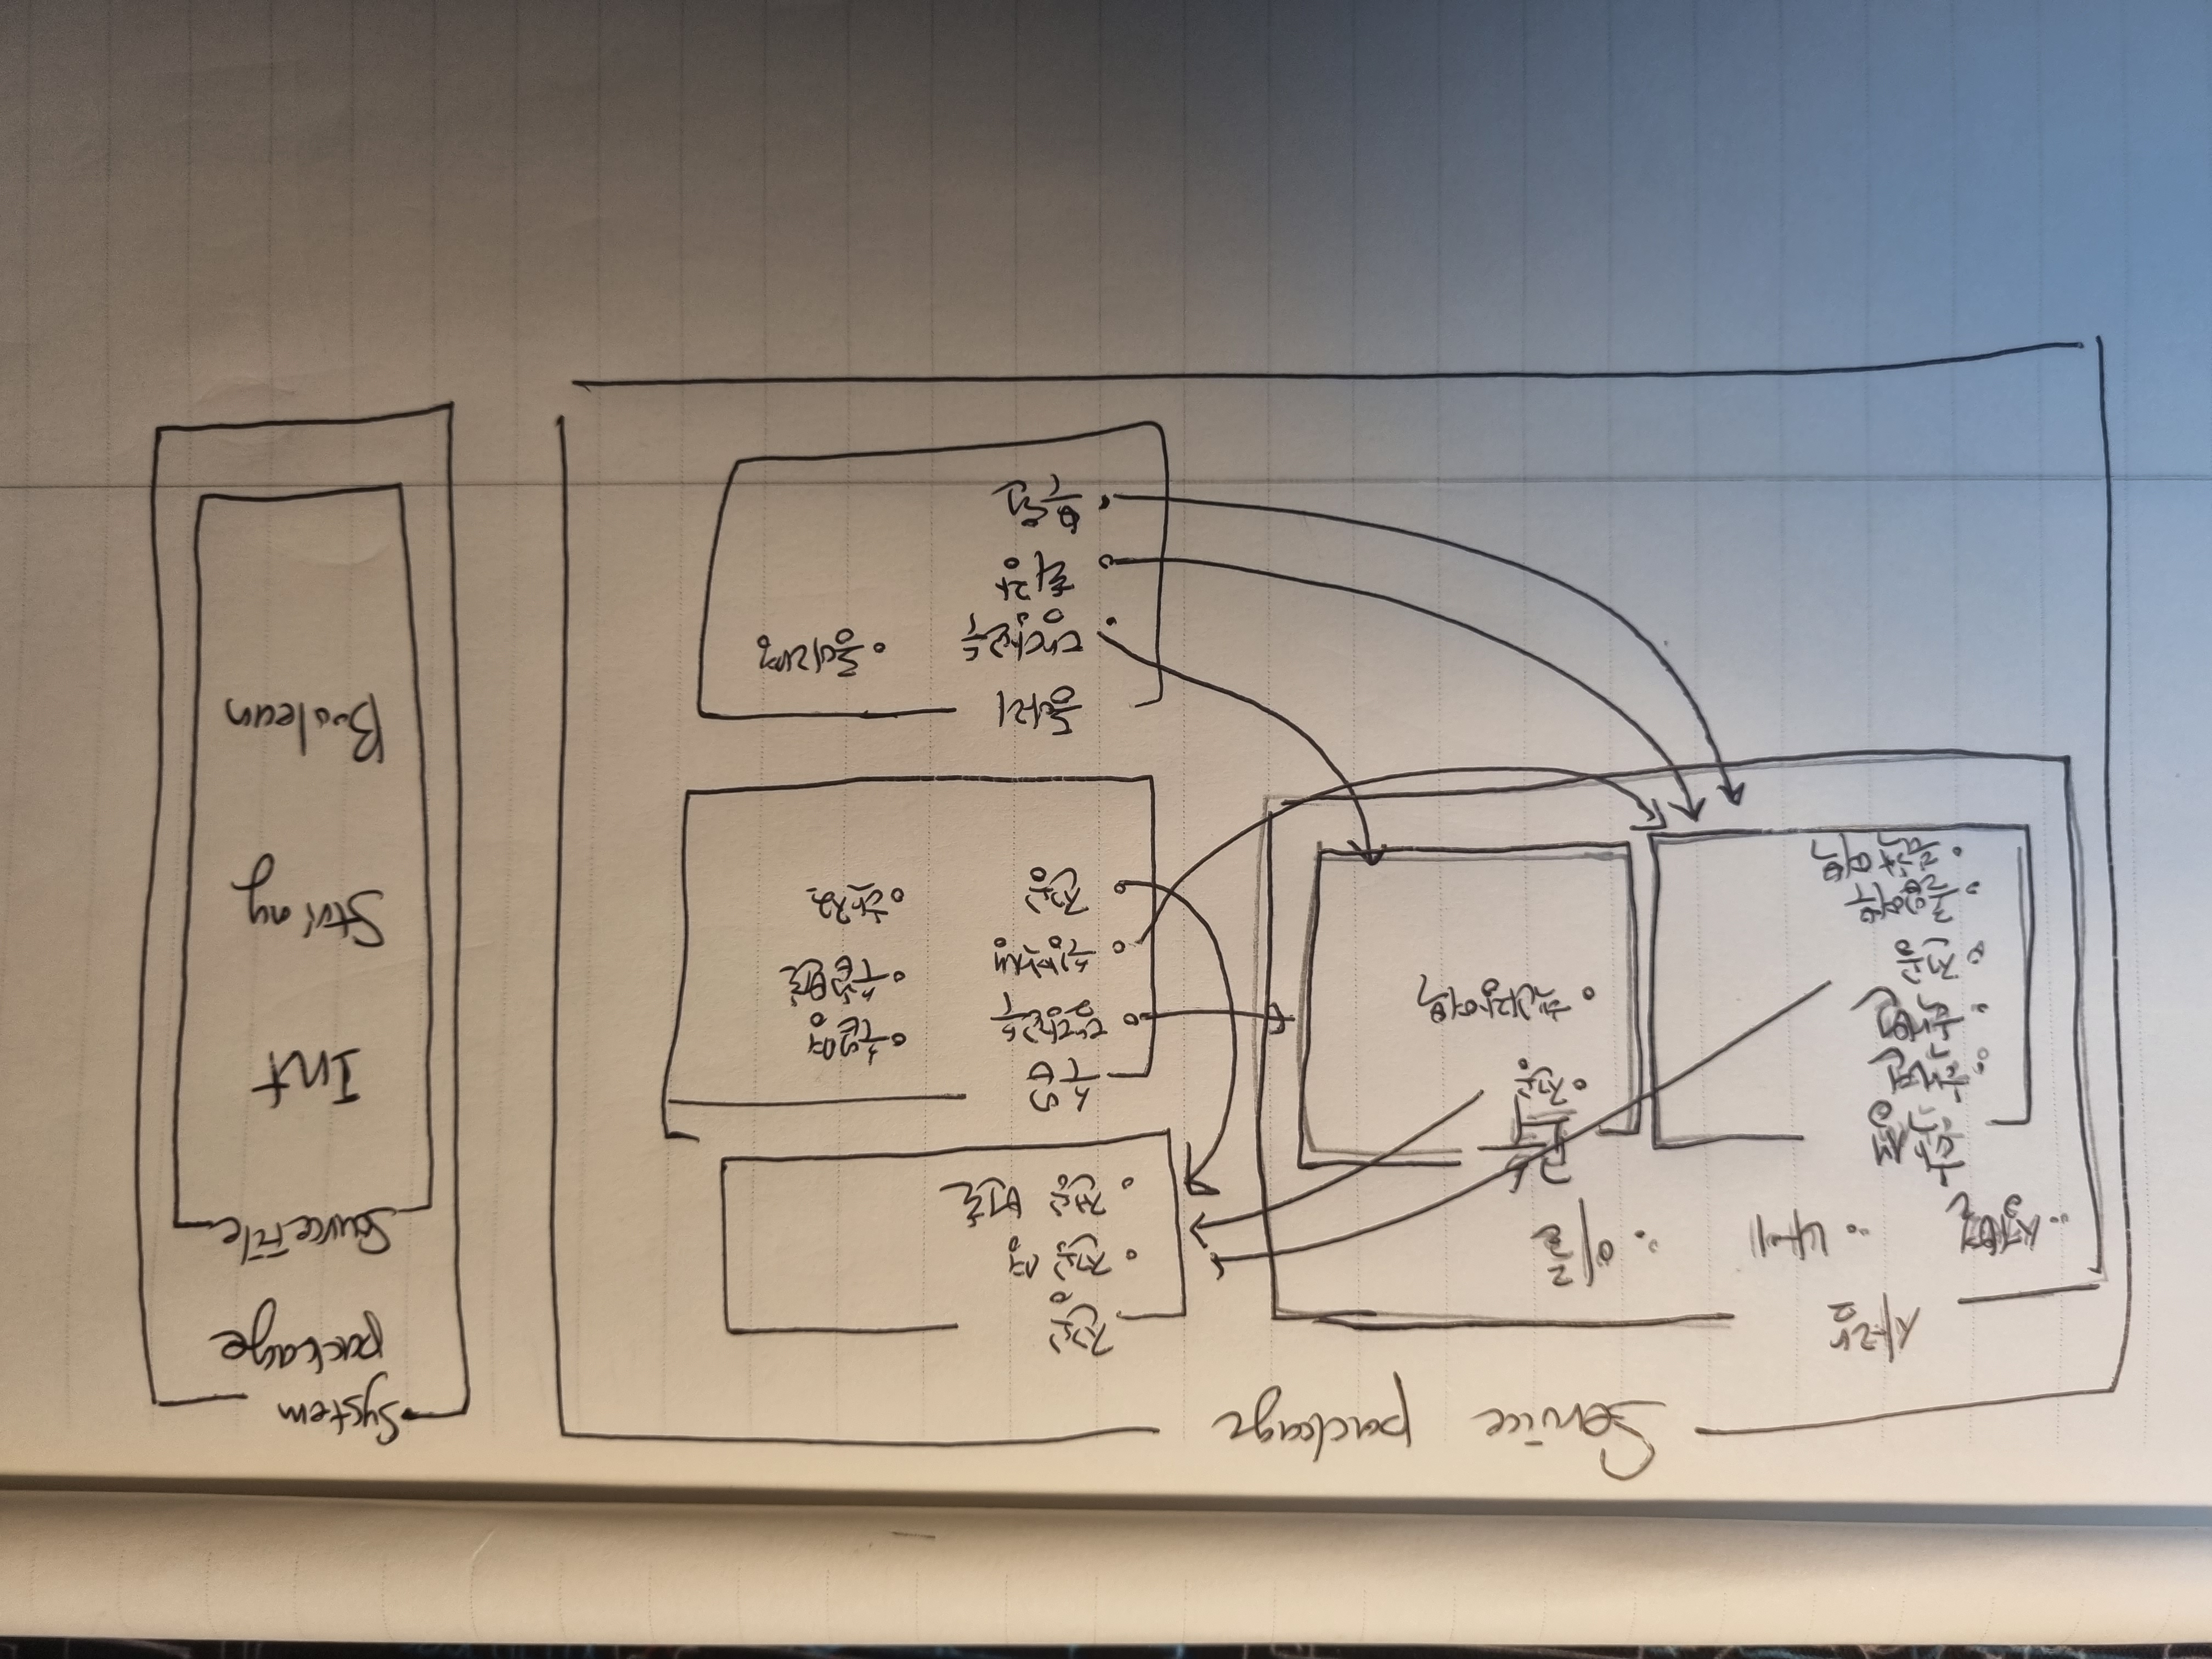 Service package
사람
성별
나이
이름
학생
학년
학번
전공
졸업여부
휴학여부
교수
전공
학과장여부
전공
전공명
전공 번호
수업
담당교수
수강학생
전공
수업명
수업번호
학점
동아리
담당교수
회장
부원
동아리명
System
package
SourceFile
Int
String
Boolean